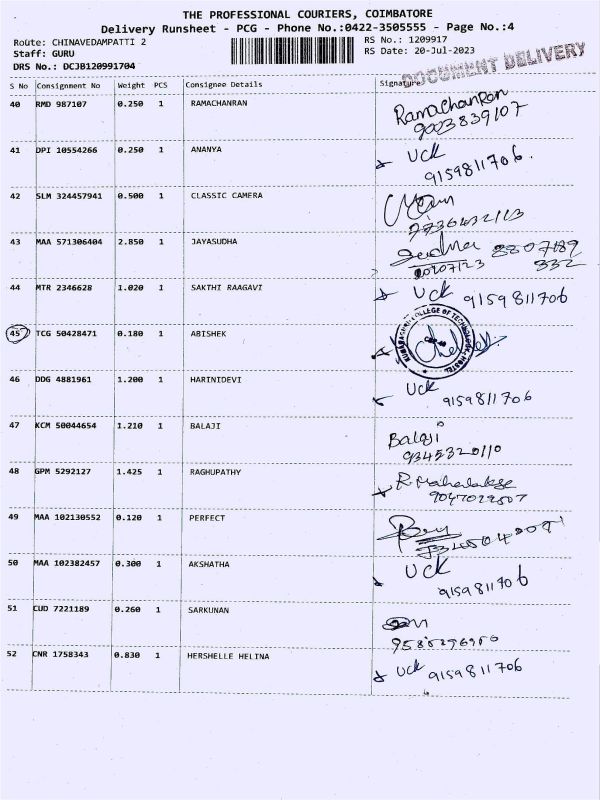 THE PROFESSIONAL COURIERS, COIMBATORE
Delivery Runsheet - PCG - Phone No.:0422-3505555 - Page No.:4
Route: CHINAVEDAMPATTI 2 RS No.: 1209917
Staff: GURU RS Date: 20-Jul-2023
DRS No.: DCJB120991704
DOCUMENT DELIVERY
S No Consignment No Weight PCS Consignee Details Signature
40 RMD 987107 0.250 1 RAMACHANRAN Ramachanran
9003839107
41 DPI 10554266 0.250 1 ANANYA UCK
9159811706.
42 SLM 324457941 0.500 1 CLASSIC CAMERA
43 MAA 571306404 2.850 1 JAYASUDHA 8807189
20/07/23 332
44 MTR 2346628 1.020 1 SAKTHI RAAGAVI UCK 9159811706
45 TCG 50428471 0.180 1 ABISHEK
KUMARAGURU COLLEGE OF TECHNOLOGY, HOSTEL
46 DDG 4881961 1.200 1 HARINIDEVI UCK
9159811706
47 KCM 50044654 1.210 1 BALAJI Balaji
9345320110
48 GPM 5292127 1.425 1 RAGHUPATHY R Mahalakse
9047022507
49 MAA 102130552 0.120 1 PERFECT
50 MAA 102382457 0.300 1 AKSHATHA UCK
9159811706
51 CUD 7221189 0.260 1 SARKUNAN
52 CNR 1758343 0.830 1 HERSHELLE HELINA UCK 9159811706